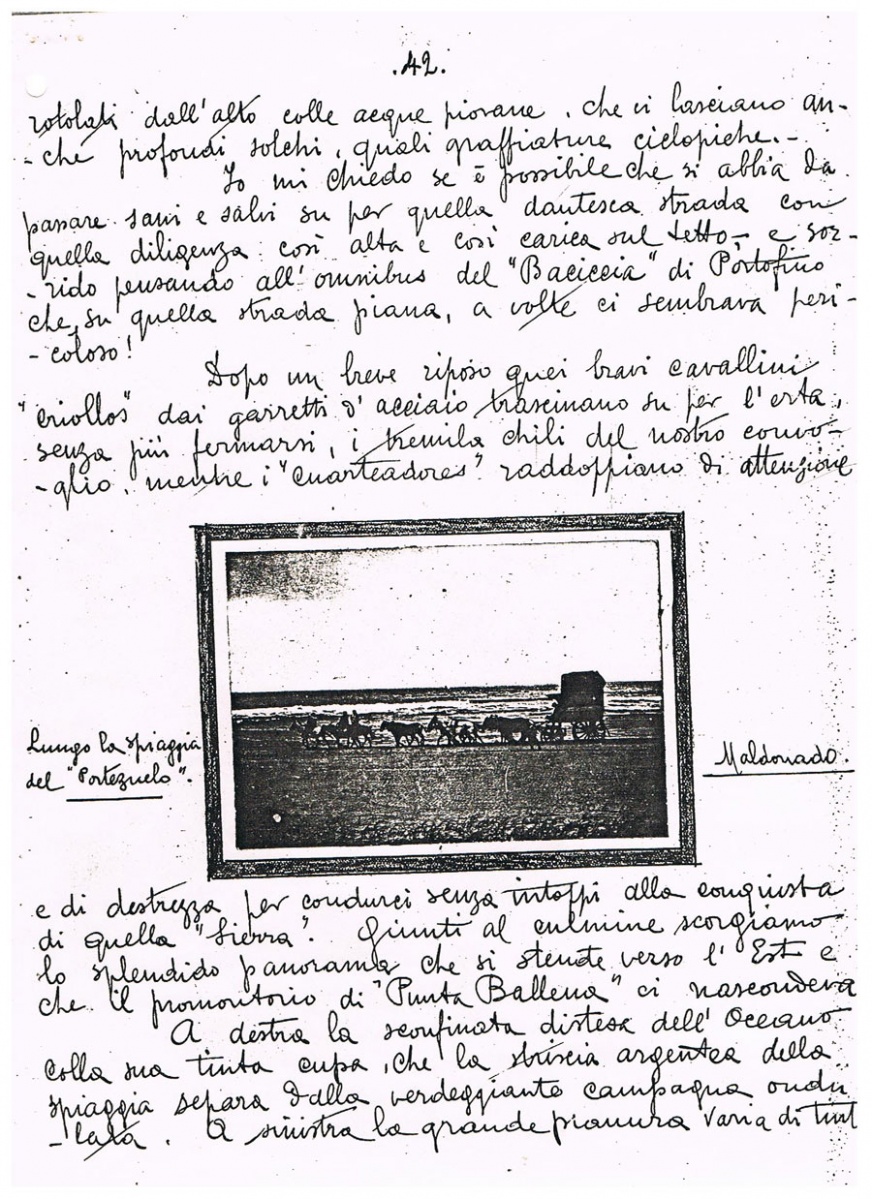 .42.
rotolati dall'alto colle acque piovane, che vi lasciano an-
-che profondi solchi, quali graffiature ciclopiche.-
Io mi chiedo se è possibile che si abbia da
passare sani e salvi su per quella dantesca strada con
quella diligenza così alta e così carica sul tetto- e sor-
-rido pensando all'omnibus del "Baciccia" di Portofino
che, su quella strada piana, a volte ci sembrava peri-
-coloso!
Dopo un breve riposo quei bravi cavallini
"criollos" dai garretti d'acciaio trascinano su per l'erta,
senza più fermarsi, i tremila chili del nostro convo-
-glio, mentre i "cuarteadores" raddoppiano di attenzione
Lungo la spiaggia
del "Portezuelo".
Maldonado.
e di destrezza per condurci senza intoppi alla conquista
di quella "Sierra". Giunti al culmine scorgiamo
lo splendido panorama che si stende verso l'Est e
che il promontorio di "Punta Ballena" ci nascondeva
A destra la sconfinata distesa dell'Oceano
colla sua tinta cupa, che la striscia argentea della
spiaggia separa dalla verdeggiante campagna ondu
-lata. A sinistra la grande pianura varia di tint